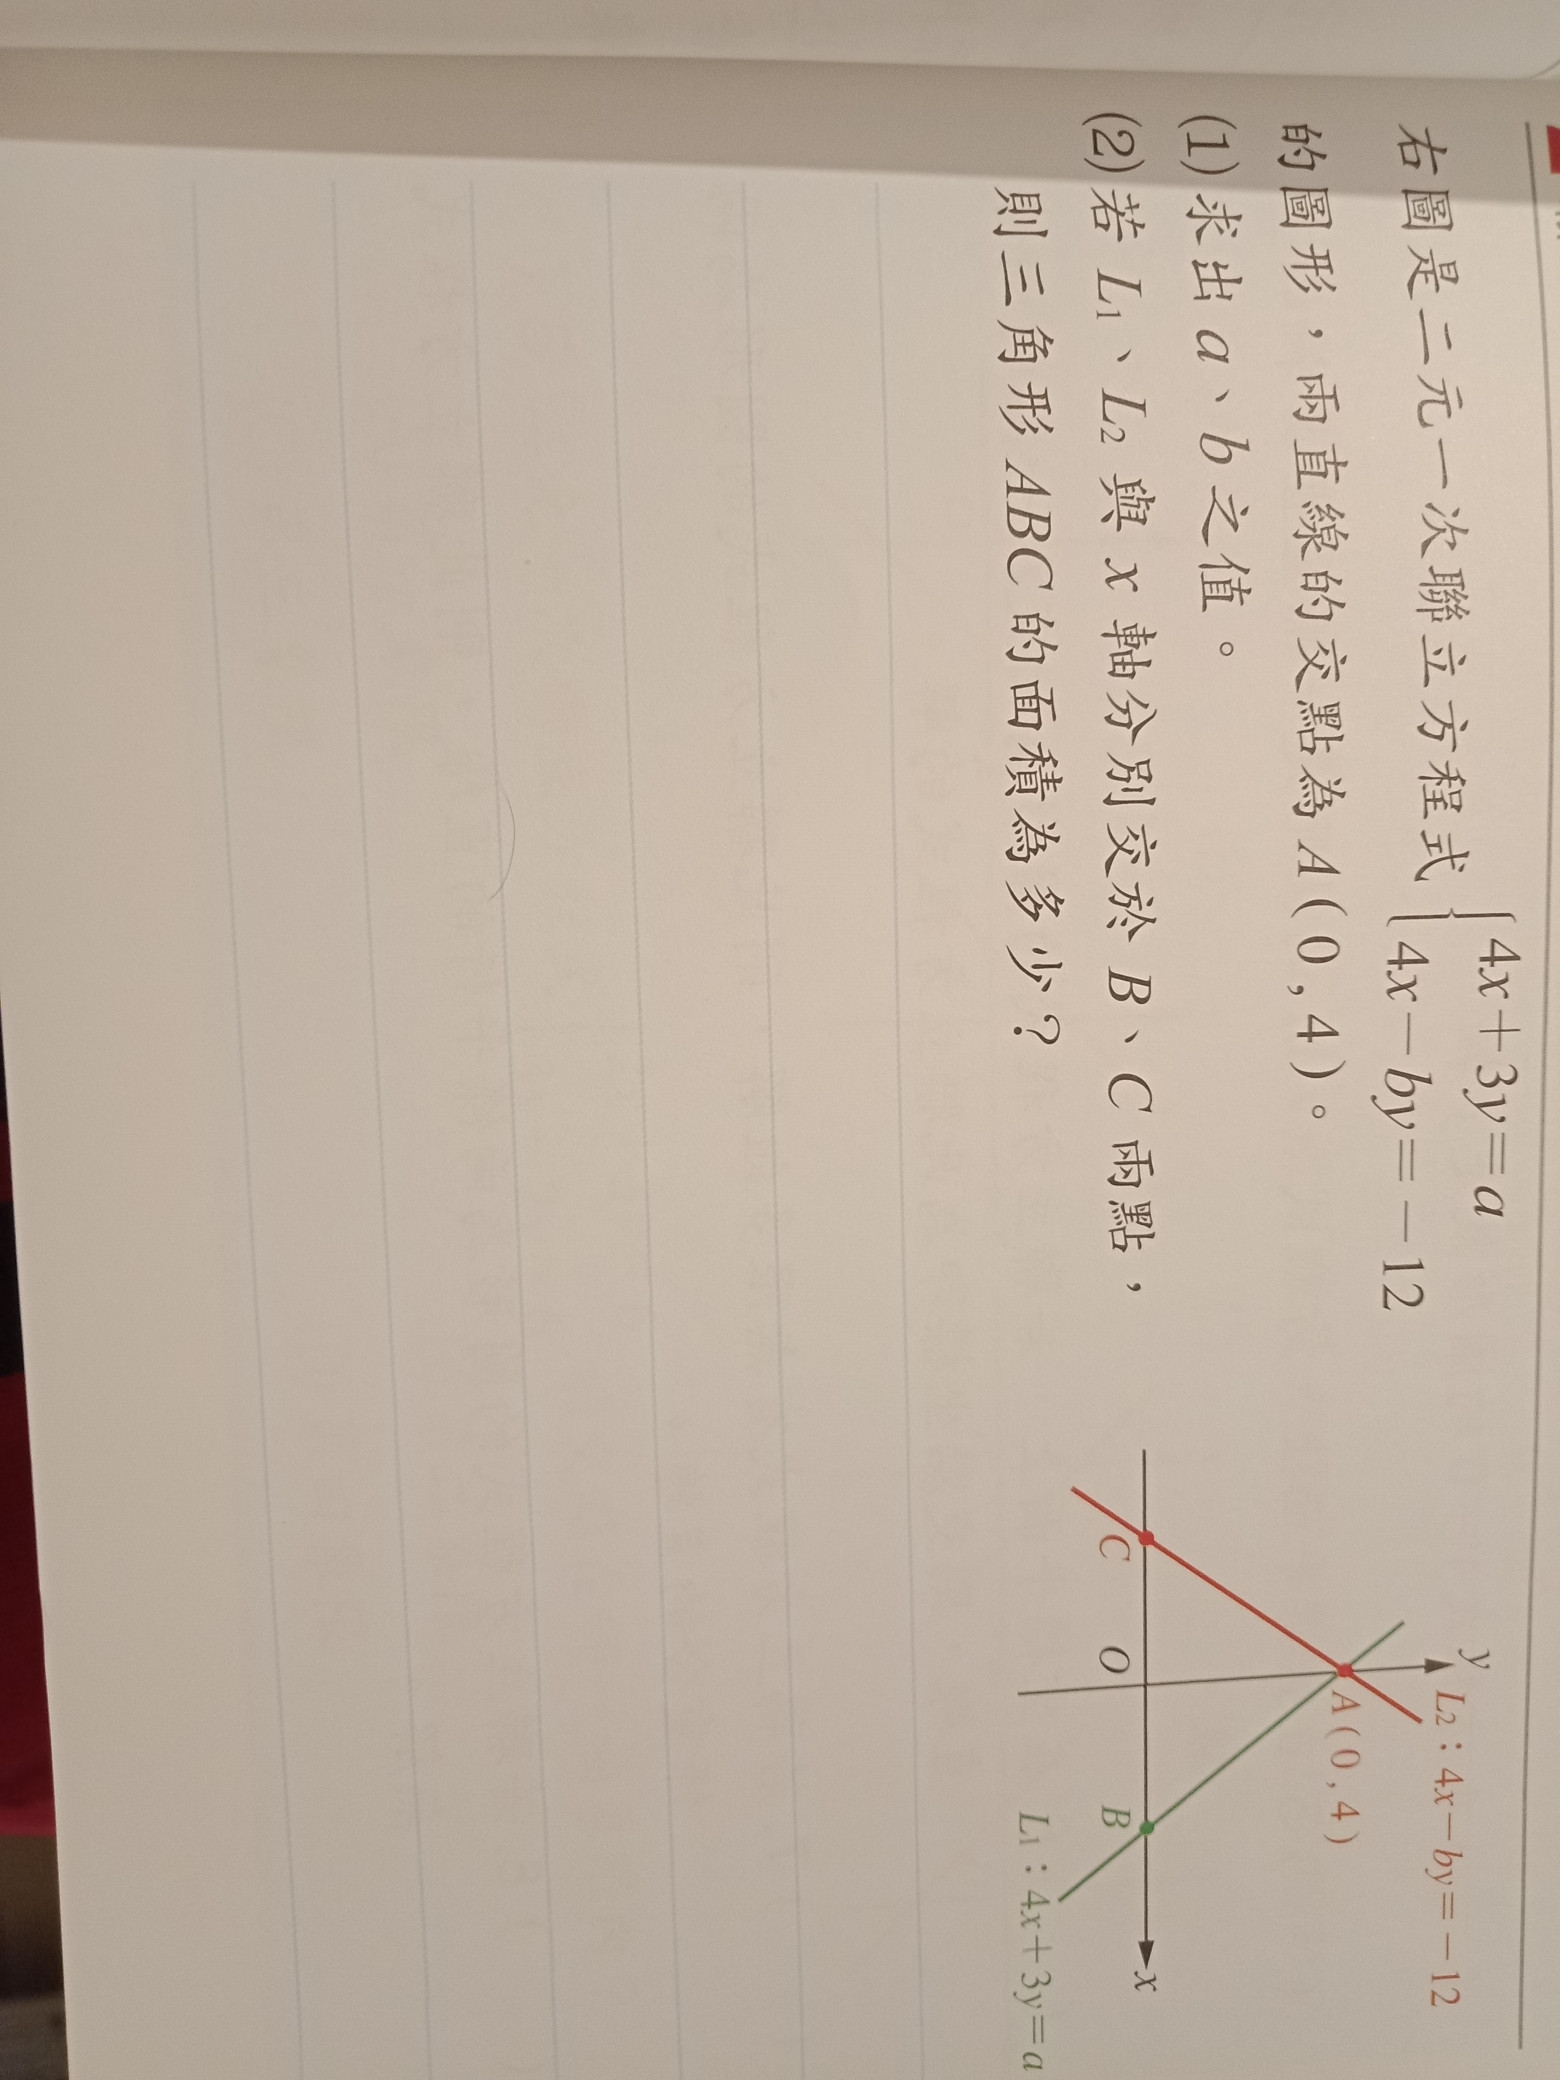 右圖是二元一次聯立方程式 { 4x+3y=a
4x-by=-12
的圖形，兩直線的交點為 A(0,4)。
(1)求出 a、b 之值。
(2)若 L₁、L₂ 與 x 軸分別交於 B、C 兩點，
則三角形 ABC 的面積為多少？
y
L₂：4x-by=-12
A(0,4)
C
O
B
x
L₁：4x+3y=a